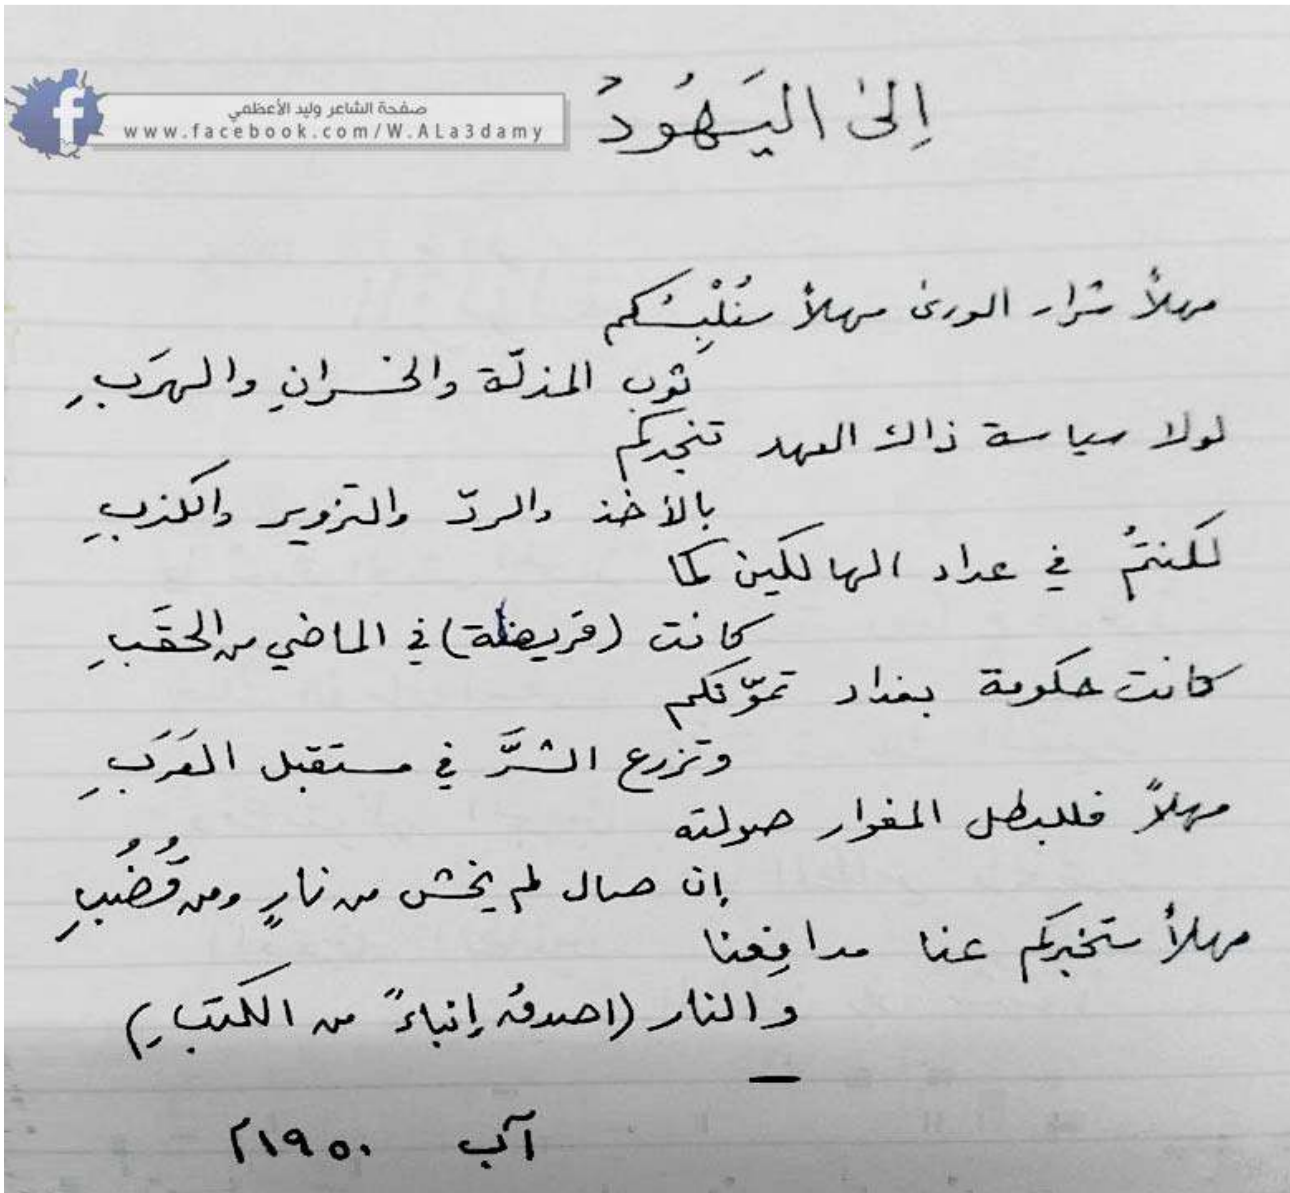 صفحة الشاعر وليد الأعظمي
www.facebook.com/W.ALa3damy
إلى اليَهُودُ
مهلاً شرار الورى مهلاً سنُلْبِسُكم
ثوب المذلّة والخسرانِ والهرَبِ
لولا سياسة ذاك العهد تنجدكم
بالأخذ والردّ والتزوير والكذبِ
لكنتمُ في عداد الهالكين كما
كانت (قريظة) في الماضي من الحقَبِ
كانت حكومة بغداد تموّنكم
وتزرع الشرَّ في مستقبل العَرَبِ
مهلاً فللبطل المغوار صولته
إن صال لم يخش من نارٍ ومن قُضُبِ
مهلاً ستخبركم عنا مدافِعنا
والنار (اصدقُ إنباءً من الكتبِ)
آب ١٩٥٠م